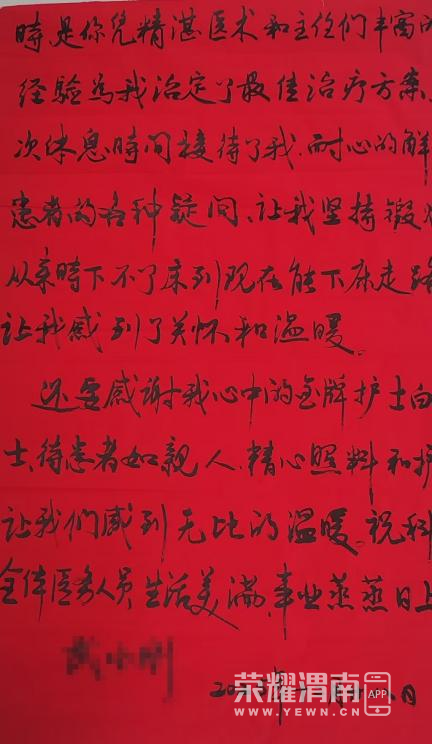 時是你凭精湛医术和主任们丰富的
经验为我治定了最佳治疗方案、
次休息時间接待了我.耐心的解
患者的各种疑问、让我坚持锻
从来時下不了床到现在能下床走路
让我感到了关怀和温暖。
还要感谢我心中的金牌护士白
士、待患者如親人、精心照料和护
让我们感到无比的温暖。祝科
全体医务人员生活美满、事业蒸蒸日上
荣耀渭南 APP
WWW.YEWN.CN